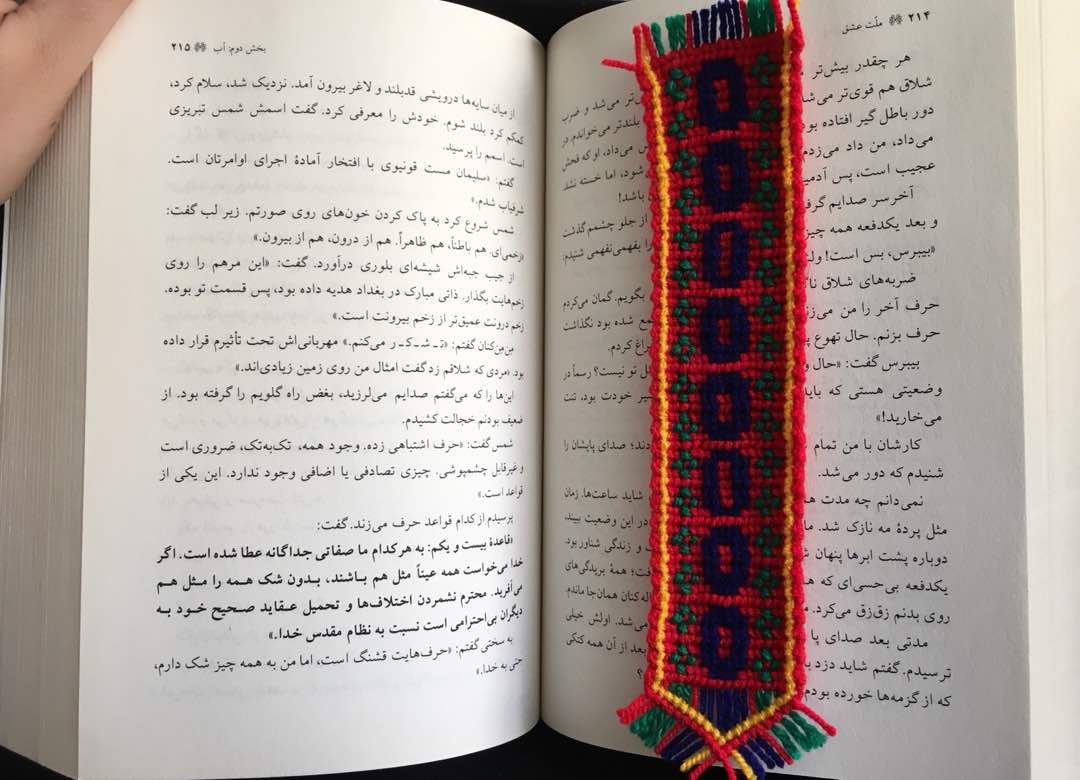 ۲۱۴ ملّت عشق
هر چقدر بیش‌تر می‌شد و ضرب
شلاق هم قوی‌تر بلندتر می‌خواندم. در
دور باطل گیر افتاده می‌داد، او که فحش
می‌داد، من داد می‌زدم اما خسته نشد
عجیب است، پس باشد!
آخرسر صدایم از جلو چشمم گذشت
و بعد یکدفعه همه چیز را بفهمی‌نفهمی شنیدم:
«بیبرس، بس است!
ضربه‌های شلاق بگویم. گمان می‌کردم
حرف آخر را من شده بود نگذاشت
حرف بزنم. حال تهوع کردم.
بیبرس گفت: «حال تو نیست؟ رسماً در
وضعیتی هستی که خودت بود، تنت
می‌خارید!»
کارشان با من تمام صدای پایشان را
شنیدم که دور می‌شد.
نمی‌دانم چه مدت شاید ساعت‌ها. زمان
مثل پردۀ مه نازک شد. در این وضعیت ببیند،
دوباره پشت ابرها پنهان و زندگی شناور بود.
یکدفعه بی‌حسی‌ای که همۀ بریدگی‌های
روی بدنم زق‌زق می‌کرد. همان‌جا ماندم.
مدتی بعد صدای پا اولش خیلی
ترسیدم. گفتم شاید دزد بعد از آن همه کتکی
که از گزمه‌ها خورده بودم ؟
بخش دوم: آب ۲۱۵
از میان سایه‌ها درویشی قدبلند و لاغر بیرون آمد. نزدیک شد، سلام کرد،
کمکم کرد بلند شوم. خودش را معرفی کرد. گفت اسمش شمس تبریزی
است. اسمم را پرسید.
گفتم: «سلیمان مست قونیوی با افتخار آمادۀ اجرای اوامرتان است.
شرفیاب شدم.»
شمس شروع کرد به پاک کردن خون‌های روی صورتم. زیر لب گفت:
«زخمی‌ای. هم باطناً، هم ظاهراً. هم از درون، هم از بیرون.»
از جیب جبه‌اش شیشه‌ای بلوری درآورد. گفت: «این مرهم را روی
زخم‌هایت بگذار. ذاتی مبارک در بغداد هدیه داده بود، پس قسمت تو بوده.
زخم درونت عمیق‌تر از زخم بیرونت است.»
مِن‌مِن‌کنان گفتم: «تـ ـشـ ـکـ ـر می‌کنم.» مهربانی‌اش تحت تأثیرم قرار داده
بود. «مردی که شلاقم زد گفت امثال من روی زمین زیادی‌اند.»
این‌ها را که می‌گفتم صدایم می‌لرزید، بغض راه گلویم را گرفته بود. از
ضعیف بودنم خجالت کشیدم.
شمس گفت: «حرف اشتباهی زده. وجود همه، تک‌به‌تک، ضروری است
و غیرقابل چشمپوشی. چیزی تصادفی یا اضافی وجود ندارد. این یکی از
قواعد است.»
پرسیدم از کدام قواعد حرف می‌زند. گفت:
«قاعدۀ بیست و یکم: به هر کدام ما صفاتی جداگانه عطا شده است. اگر
خدا می‌خواست همه عیناً مثل هم باشند، بدون شک همه را مثل هم
می‌آفرید. محترم نشمردن اختلاف‌ها و تحمیل عقاید صحیح خود به
دیگران بی‌احترامی است نسبت به نظام مقدس خدا.»
به سختی گفتم: «حرف‌هایت قشنگ است، اما من به همه چیز شک دارم،
حتی به خدا.»